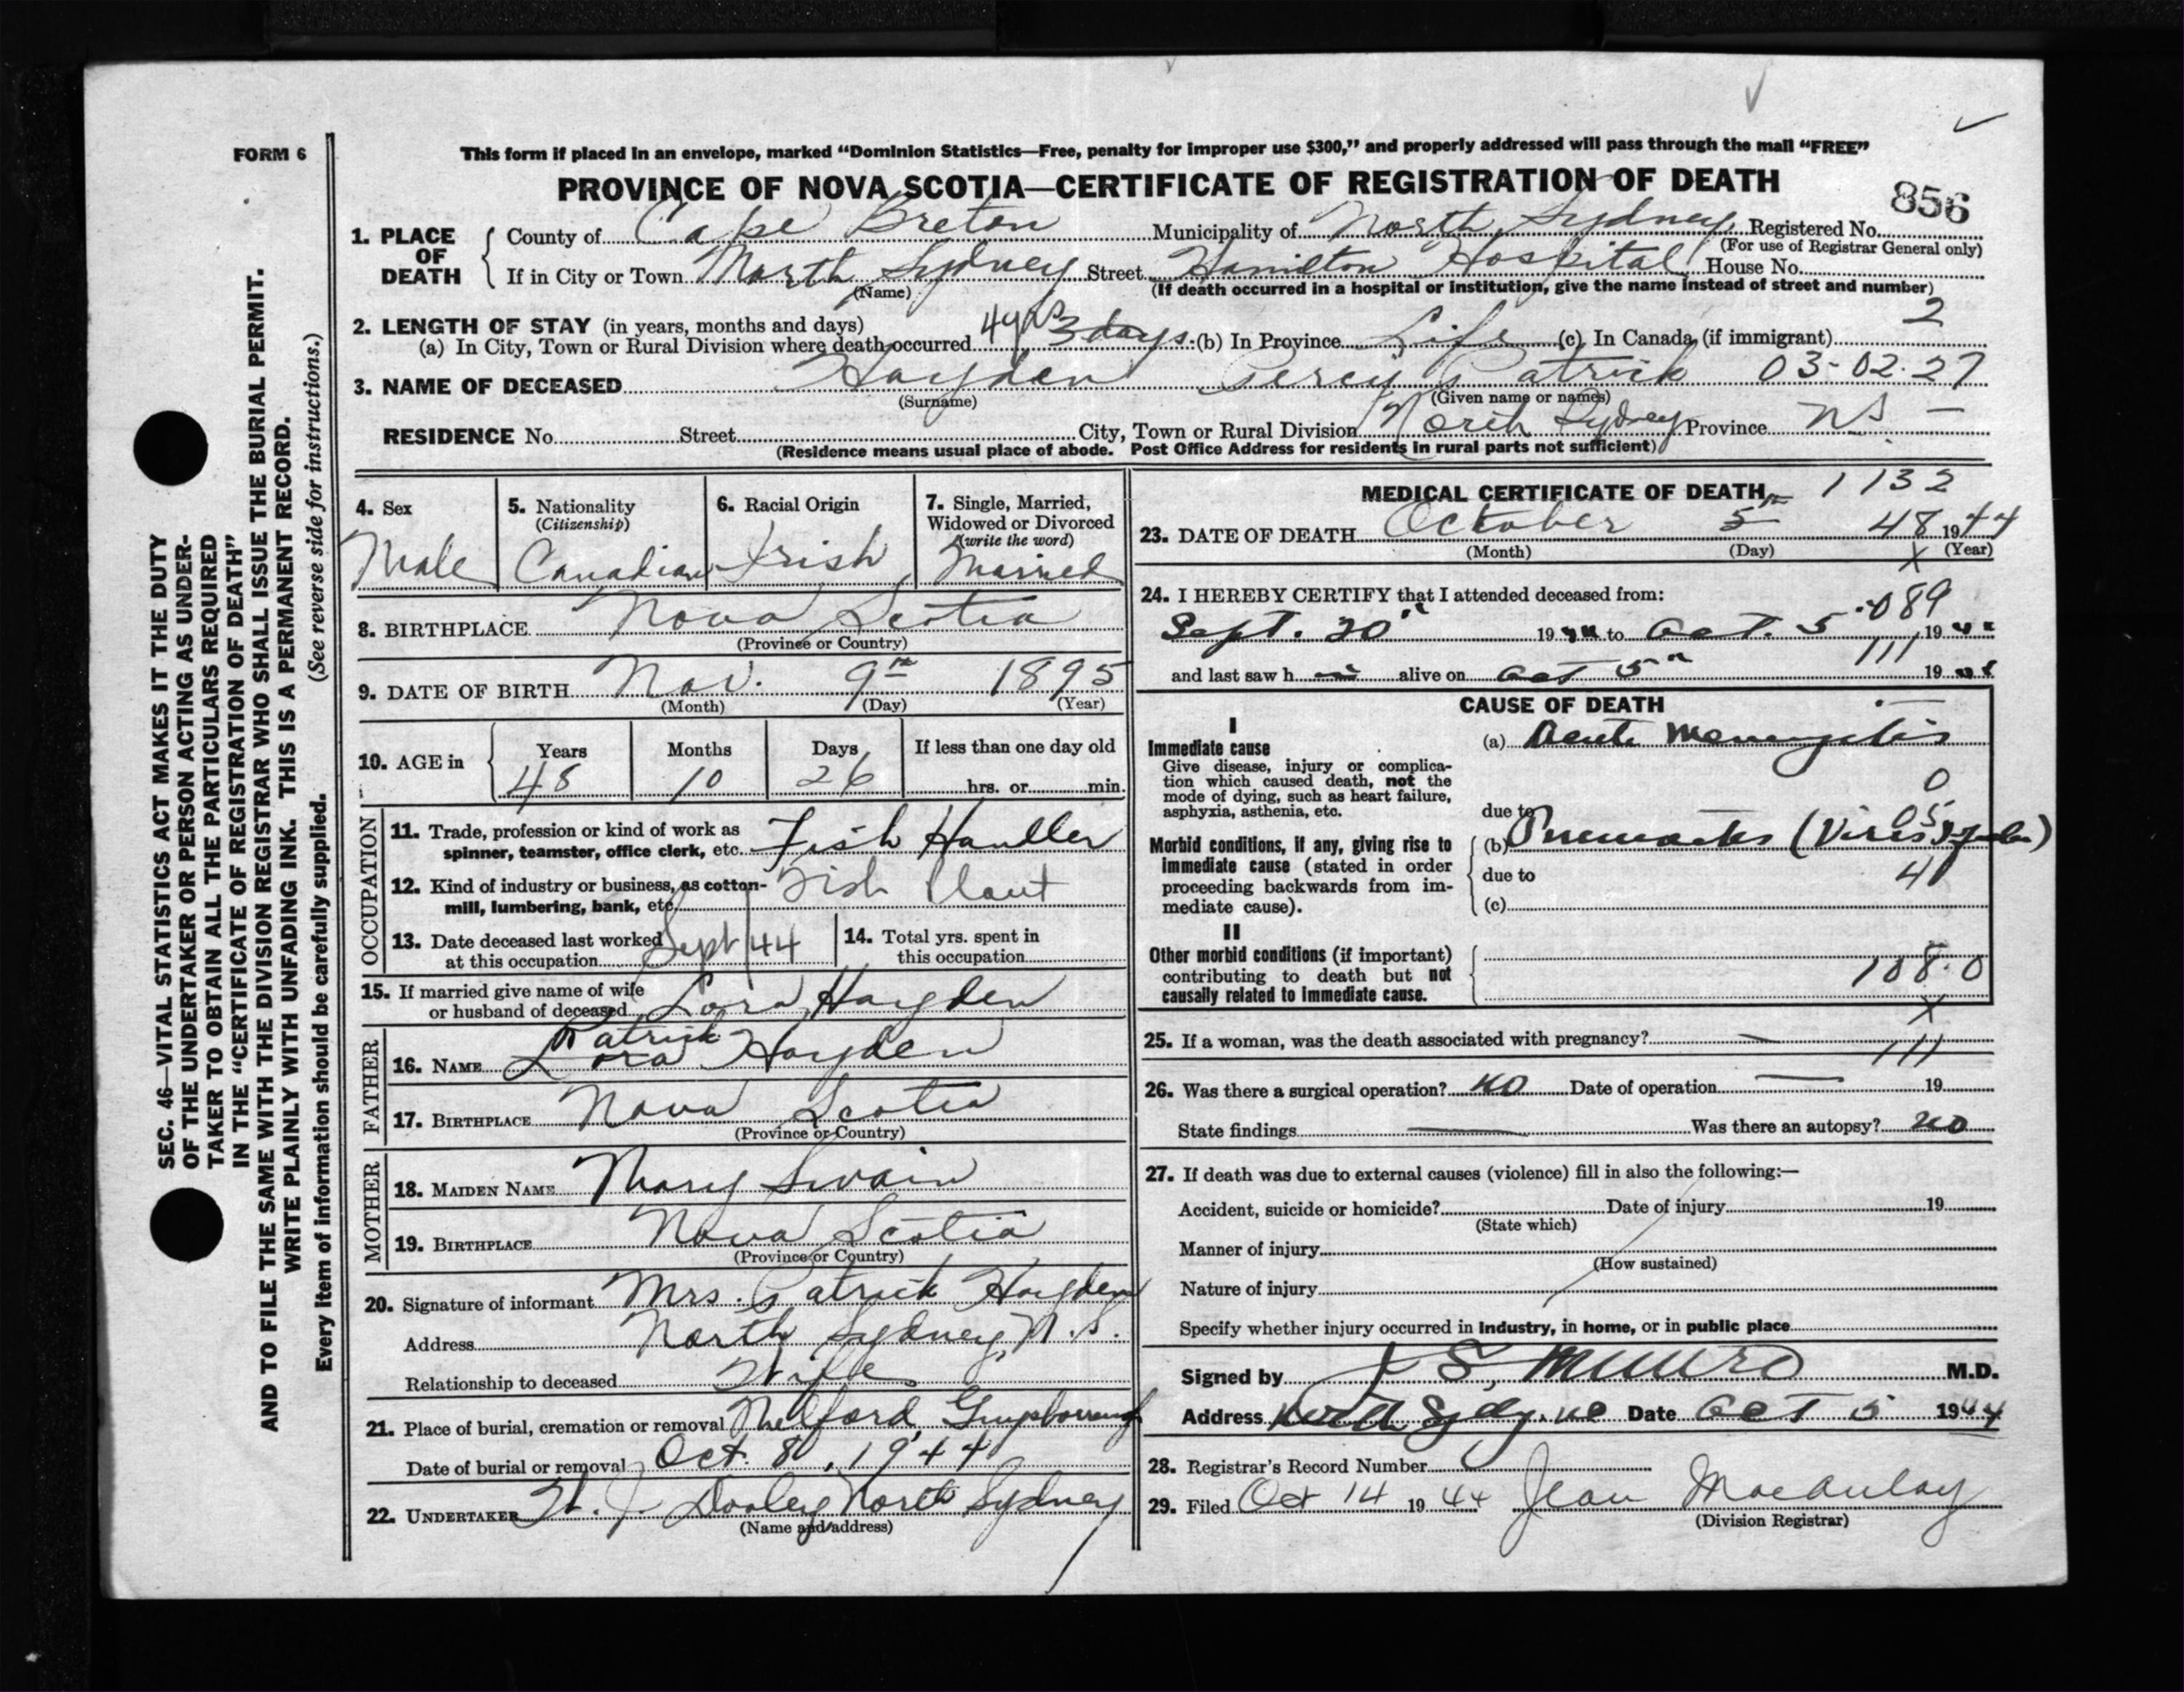 FORM 6
This form if placed in an envelope, marked “Dominion Statistics—Free, penalty for improper use $300,” and properly addressed will pass through the mail “FREE”
PROVINCE OF NOVA SCOTIA—CERTIFICATE OF REGISTRATION OF DEATH
856
1. PLACE OF DEATH { County of Cape Breton Municipality of North Sydney Registered No.
(For use of Registrar General only)
If in City or Town North Sydney Street Hamilton Hospital House No.
(Name) (If death occurred in a hospital or institution, give the name instead of street and number)
2. LENGTH OF STAY (in years, months and days) 2
(a) In City, Town or Rural Division where death occurred 3 days (b) In Province Life (c) In Canada (if immigrant)
3. NAME OF DECEASED Hayden Percy Patrick 03-02-27
(Surname) (Given name or names)
RESIDENCE No. Street City, Town or Rural Division North Sydney Province N.S. —
(Residence means usual place of abode. Post Office Address for residents in rural parts not sufficient)
4. Sex
Male
5. Nationality
(Citizenship)
Canadian
6. Racial Origin
Irish
7. Single, Married,
Widowed or Divorced
(write the word)
Married
8. BIRTHPLACE Nova Scotia
(Province or Country)
9. DATE OF BIRTH Nov. 9th 1895
(Month) (Day) (Year)
10. AGE in { Years Months Days If less than one day old
48 10 26 hrs. or min.
OCCUPATION
11. Trade, profession or kind of work as
spinner, teamster, office clerk, etc. Fish Handler
12. Kind of industry or business, as cotton-
mill, lumbering, bank, etc. Fish Plant
13. Date deceased last worked
at this occupation Sept 44
14. Total yrs. spent in
this occupation
15. If married give name of wife
or husband of deceased Lora Hayden
FATHER
Patrick
16. NAME Lora Hayden
17. BIRTHPLACE Nova Scotia
(Province or Country)
MOTHER
18. MAIDEN NAME Mary Swain
19. BIRTHPLACE Nova Scotia
(Province or Country)
20. Signature of informant Mrs. Patrick Hayden
Address North Sydney, N.S.
Relationship to deceased Wife
21. Place of burial, cremation or removal Melford Guysborough
Date of burial or removal Oct. 8, 1944
22. UNDERTAKER Dooley North Sydney
(Name and address)
MEDICAL CERTIFICATE OF DEATH 1132
23. DATE OF DEATH October 5th 48 1944
(Month) (Day) X (Year)
24. I HEREBY CERTIFY that I attended deceased from:
089
Sept. 30 1944 to Oct. 5 1944
111
and last saw h alive on Oct 5 1944
CAUSE OF DEATH
I
Immediate cause
Give disease, injury or complica-
tion which caused death, not the
mode of dying, such as heart failure,
asphyxia, asthenia, etc.
(a) Acute Meningitis
0
due to
Morbid conditions, if any, giving rise to
immediate cause (stated in order
proceeding backwards from im-
mediate cause).
(b) (Virus
due to
(c)
II
Other morbid conditions (if important)
contributing to death but not
causally related to immediate cause.
108.0
X
25. If a woman, was the death associated with pregnancy? —
111
26. Was there a surgical operation? no Date of operation — 19
State findings — Was there an autopsy? no
27. If death was due to external causes (violence) fill in also the following:—
Accident, suicide or homicide? Date of injury 19
(State which)
Manner of injury
(How sustained)
Nature of injury
Specify whether injury occurred in industry, in home, or in public place
Signed by S. Munro M.D.
Address North Date Oct 5 1944
28. Registrar's Record Number
29. Filed Oct 14 1944 Jean Macaulay
(Division Registrar)
SEC. 46—VITAL STATISTICS ACT MAKES IT THE DUTY
OF THE UNDERTAKER OR PERSON ACTING AS UNDER-
TAKER TO OBTAIN ALL THE PARTICULARS REQUIRED
IN THE “CERTIFICATE OF REGISTRATION OF DEATH”
AND TO FILE THE SAME WITH THE DIVISION REGISTRAR WHO SHALL ISSUE THE BURIAL PERMIT.
WRITE PLAINLY WITH UNFADING INK. THIS IS A PERMANENT RECORD.
Every item of information should be carefully supplied. (See reverse side for instructions.)